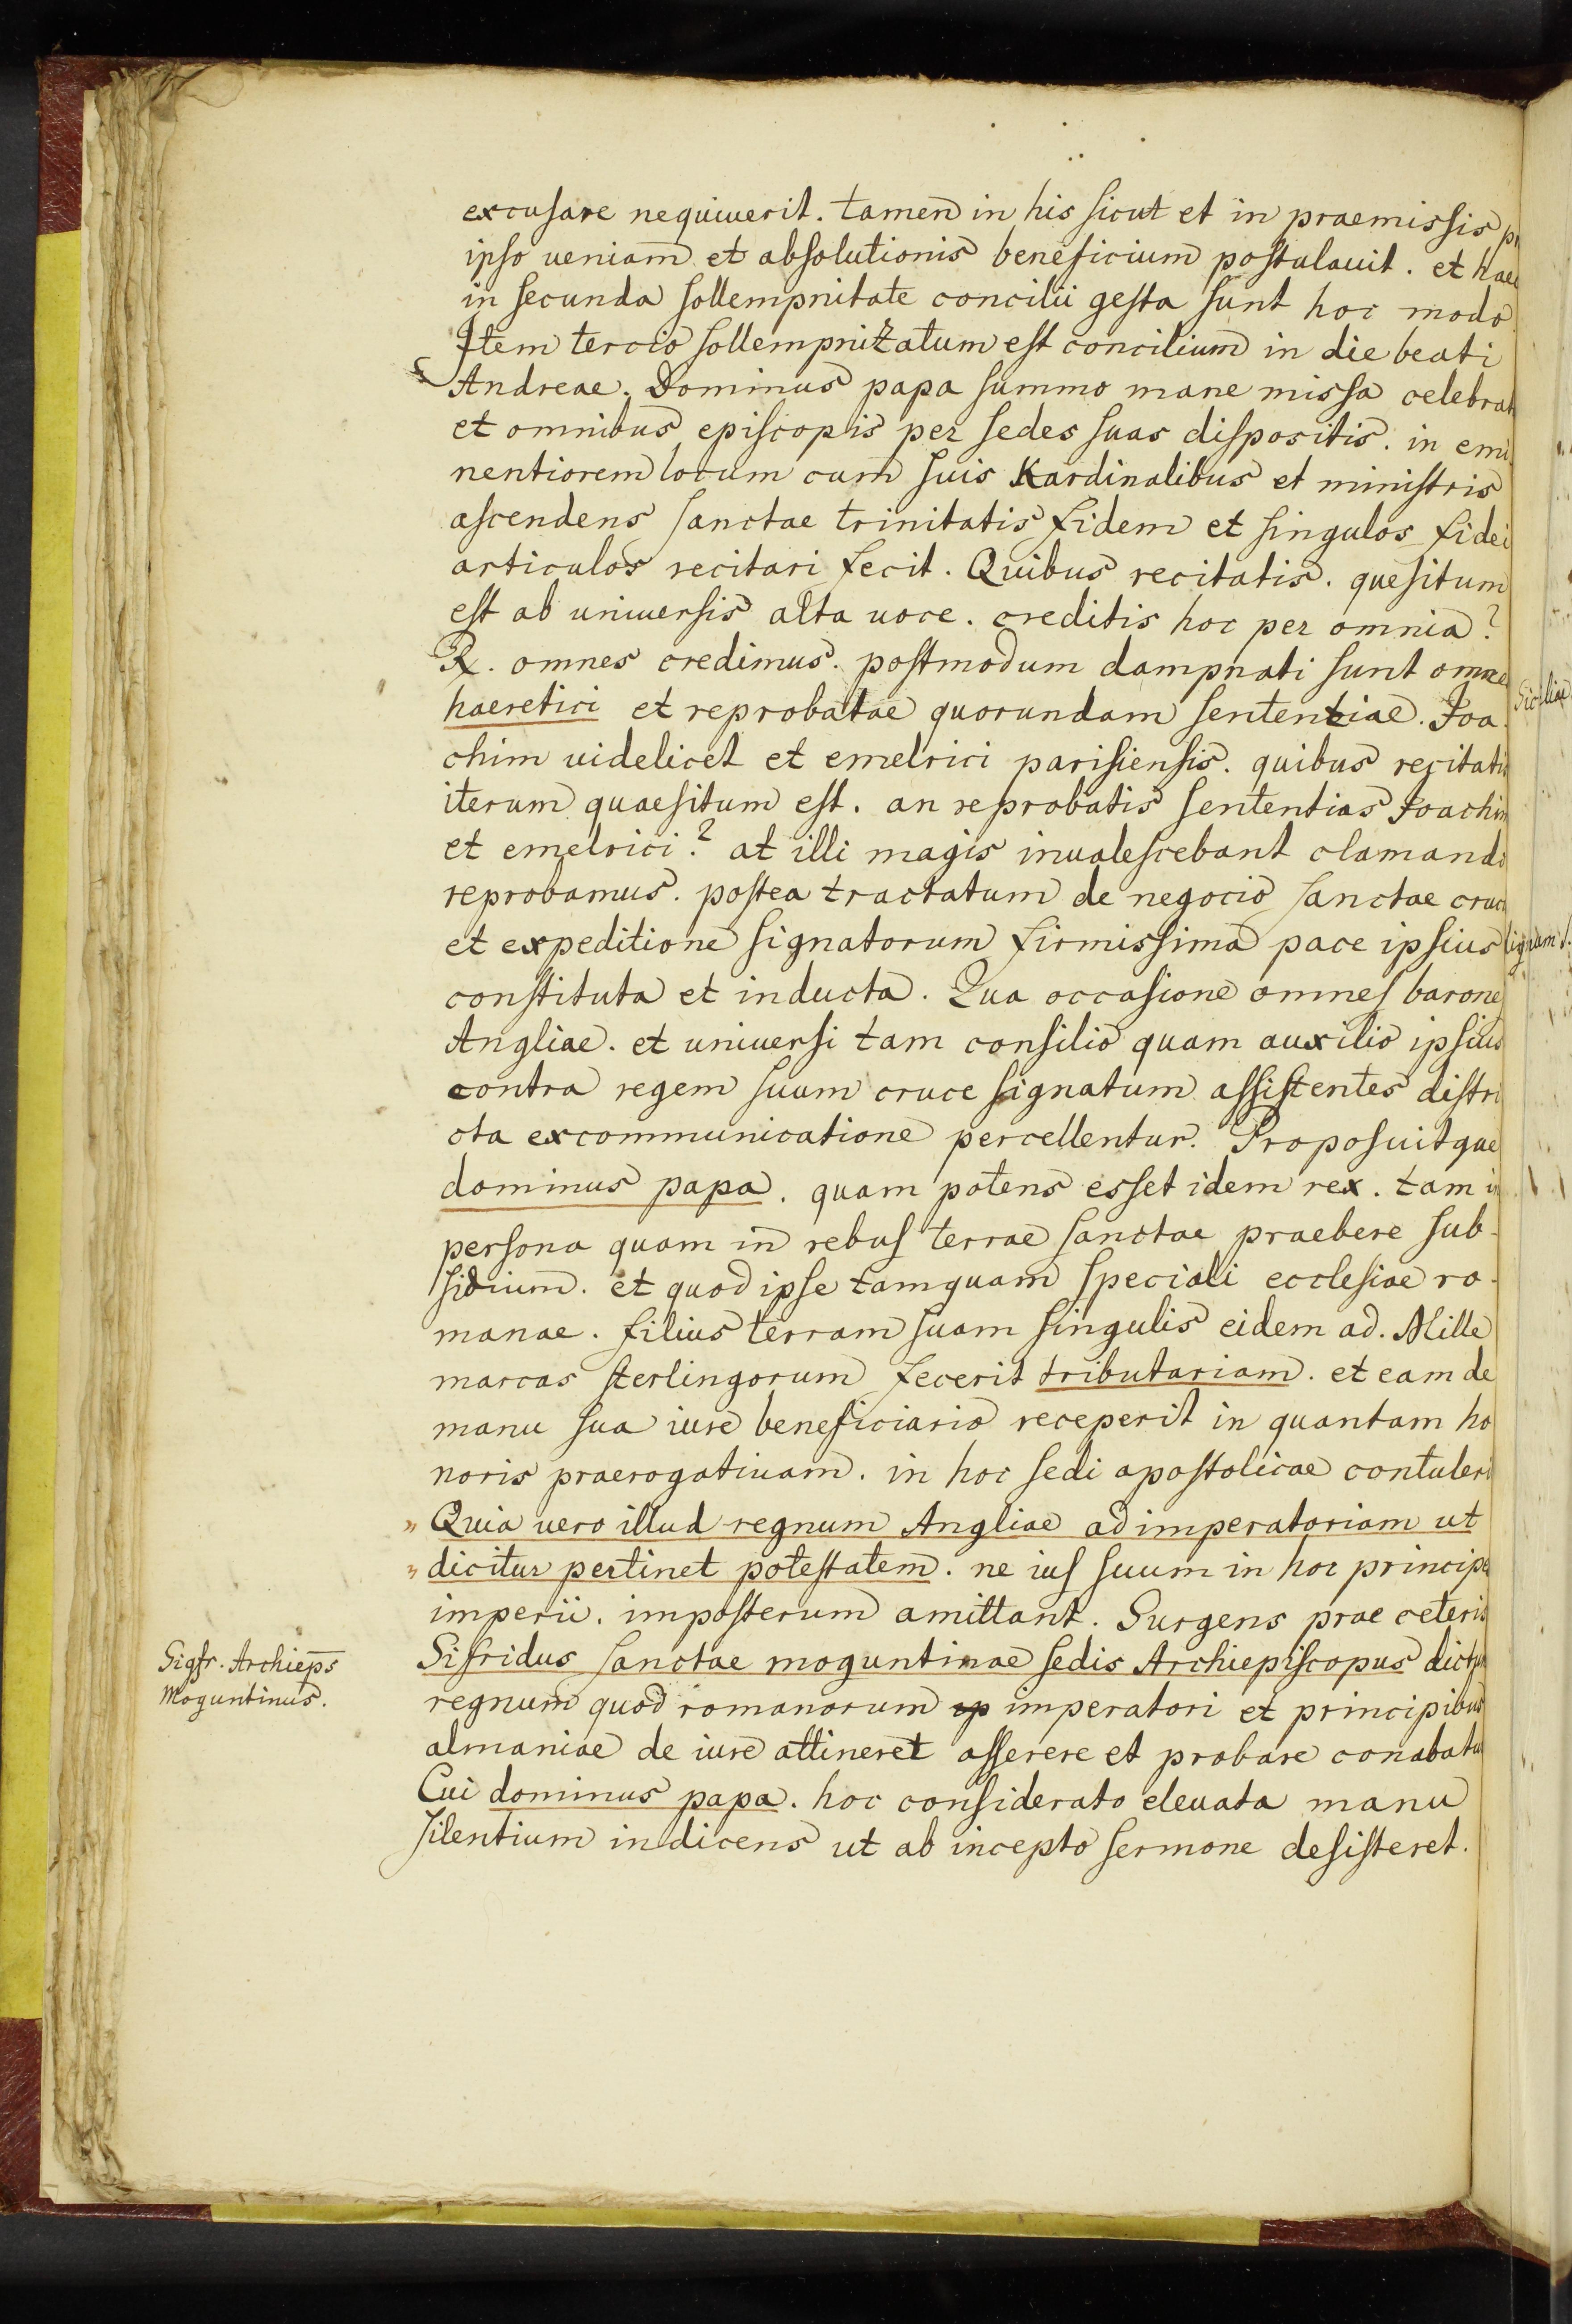 excusare nequiuerit. tamen in his sicut et in praemissis
ipso ueniam et absolutionis beneficium postulauit. et haec
in secunda sollempnitate concilii gesta sunt hoc modo
Item tercio sollempnizatum est concilium in die beati
Andreae. Dominus papa summo mane missa celebrat
et omnibus episcopis per sedes suas dispositis. in emi
nentiorem locum cum suis Kardinalibus et ministris
ascendens sanctae trinitatis fidem et singulos fidei
articulos recitari fecit. Quibus recitatis. quesitum
est ab uniuersis alta uoce. creditis hoc per omnia?
R. omnes credimus. postmodum dampnati sunt omne
haeretici et reprobatae quorundam sententiae. Joa
chim uidelicet et emelrici parisiensis. quibus recitatis
iterum quaesitum est. an reprobatis sententias Joachim
et emelrici? at illi magis inualescebant clamando
reprobamus. postea tractatum de negocio sanctae cruc
et expeditione signatorum firmissima pace ipsius
constituta et inducta. Qua occasione omnes barone
Angliae. et uniuersi tam consilio quam auxilio ipsius
contra regem suum cruce signatum assistentes distri
cta excommunicatione percellentur. Proposuitque
dominus papa. quam potens esset idem rex. tam in
persona quam in rebus terrae sanctae praebere sub-
sidium. et quod ipse tamquam speciali ecclesiae ro-
manae. filius terram suam singulis eidem ad. Mille
marcas sterlingorum fecerit tributariam. et eam de
manu sua iure beneficiario receperit in quantam ho
noris praerogatiuam. in hoc sedi apostolicae contuleri
" Quia uero illud regnum Angliae ad imperatoriam ut
" dicitur pertinet potestatem. ne ius suum in hoc principe
imperii. imposterum amittant. Surgens prae ceteris
Sigfr. Archieps̄
Moguntinus.
Sifridus sanctae moguntinae sedis Archiepiscopus dictum
regnum quod romanorum ep imperatori et principibus
almaniae de iure attineret asserere et probare conabatu
Cui dominus papa. hoc considerato eleuata manu
silentium indicens ut ab incepto sermone desisteret.